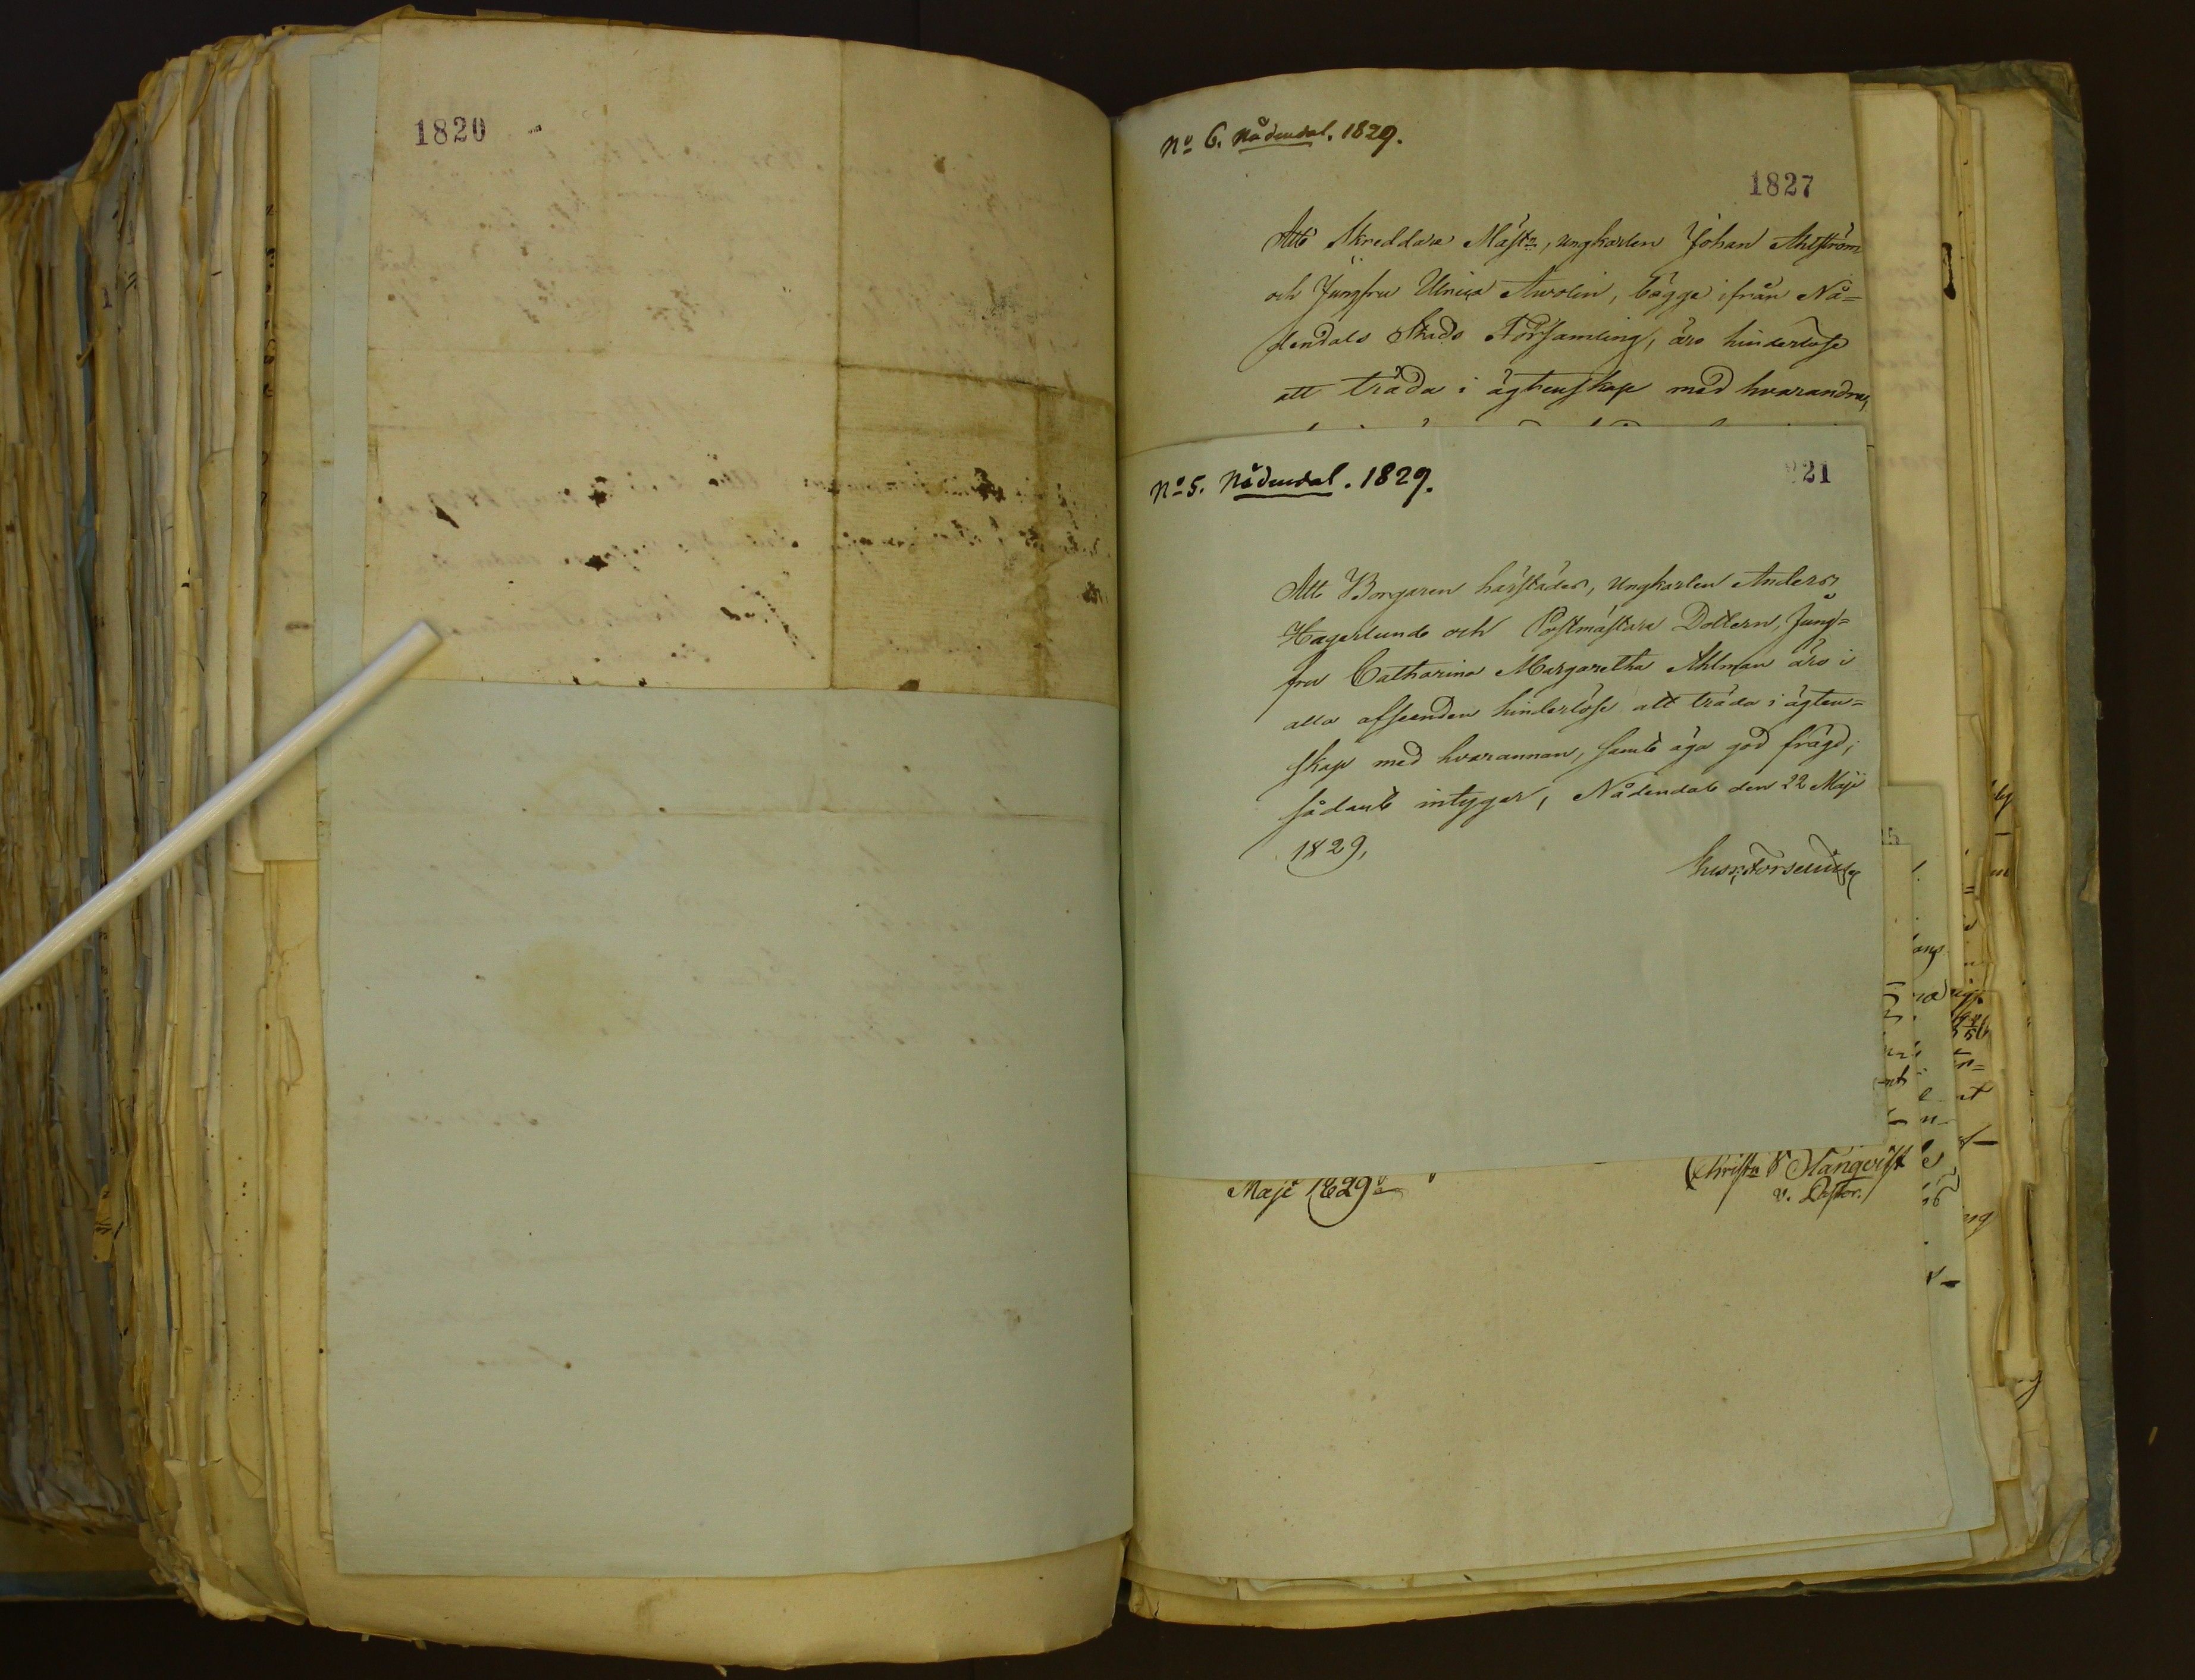 1820
No 6. Nådendal. 1829.
1827
Att Skreddare Mäst:n, ungkarlen Johan Ahlström
och Jungfru Ulrica Awolin, bägge ifrån Nå=
dendals Stads Församling, äro hinderlöse
att träda i ägtenskap med hvarandra,
No 5. Nådendal. 1829.
21
Att Borgaren härstädes, Ungkarlen Anders
Hagerlund och Postmästare Dottern, Jung=
fru Catharina Margaretha Ahlman äro i
alla afseenden hinderlöse att träda i ägten=
skap med hvarannan, samt äga god frägd;
sådant intygar, Nådendal den 22 Maji
1829,
Maji 1829
Christ:n Tanqvist
v. Pastor.